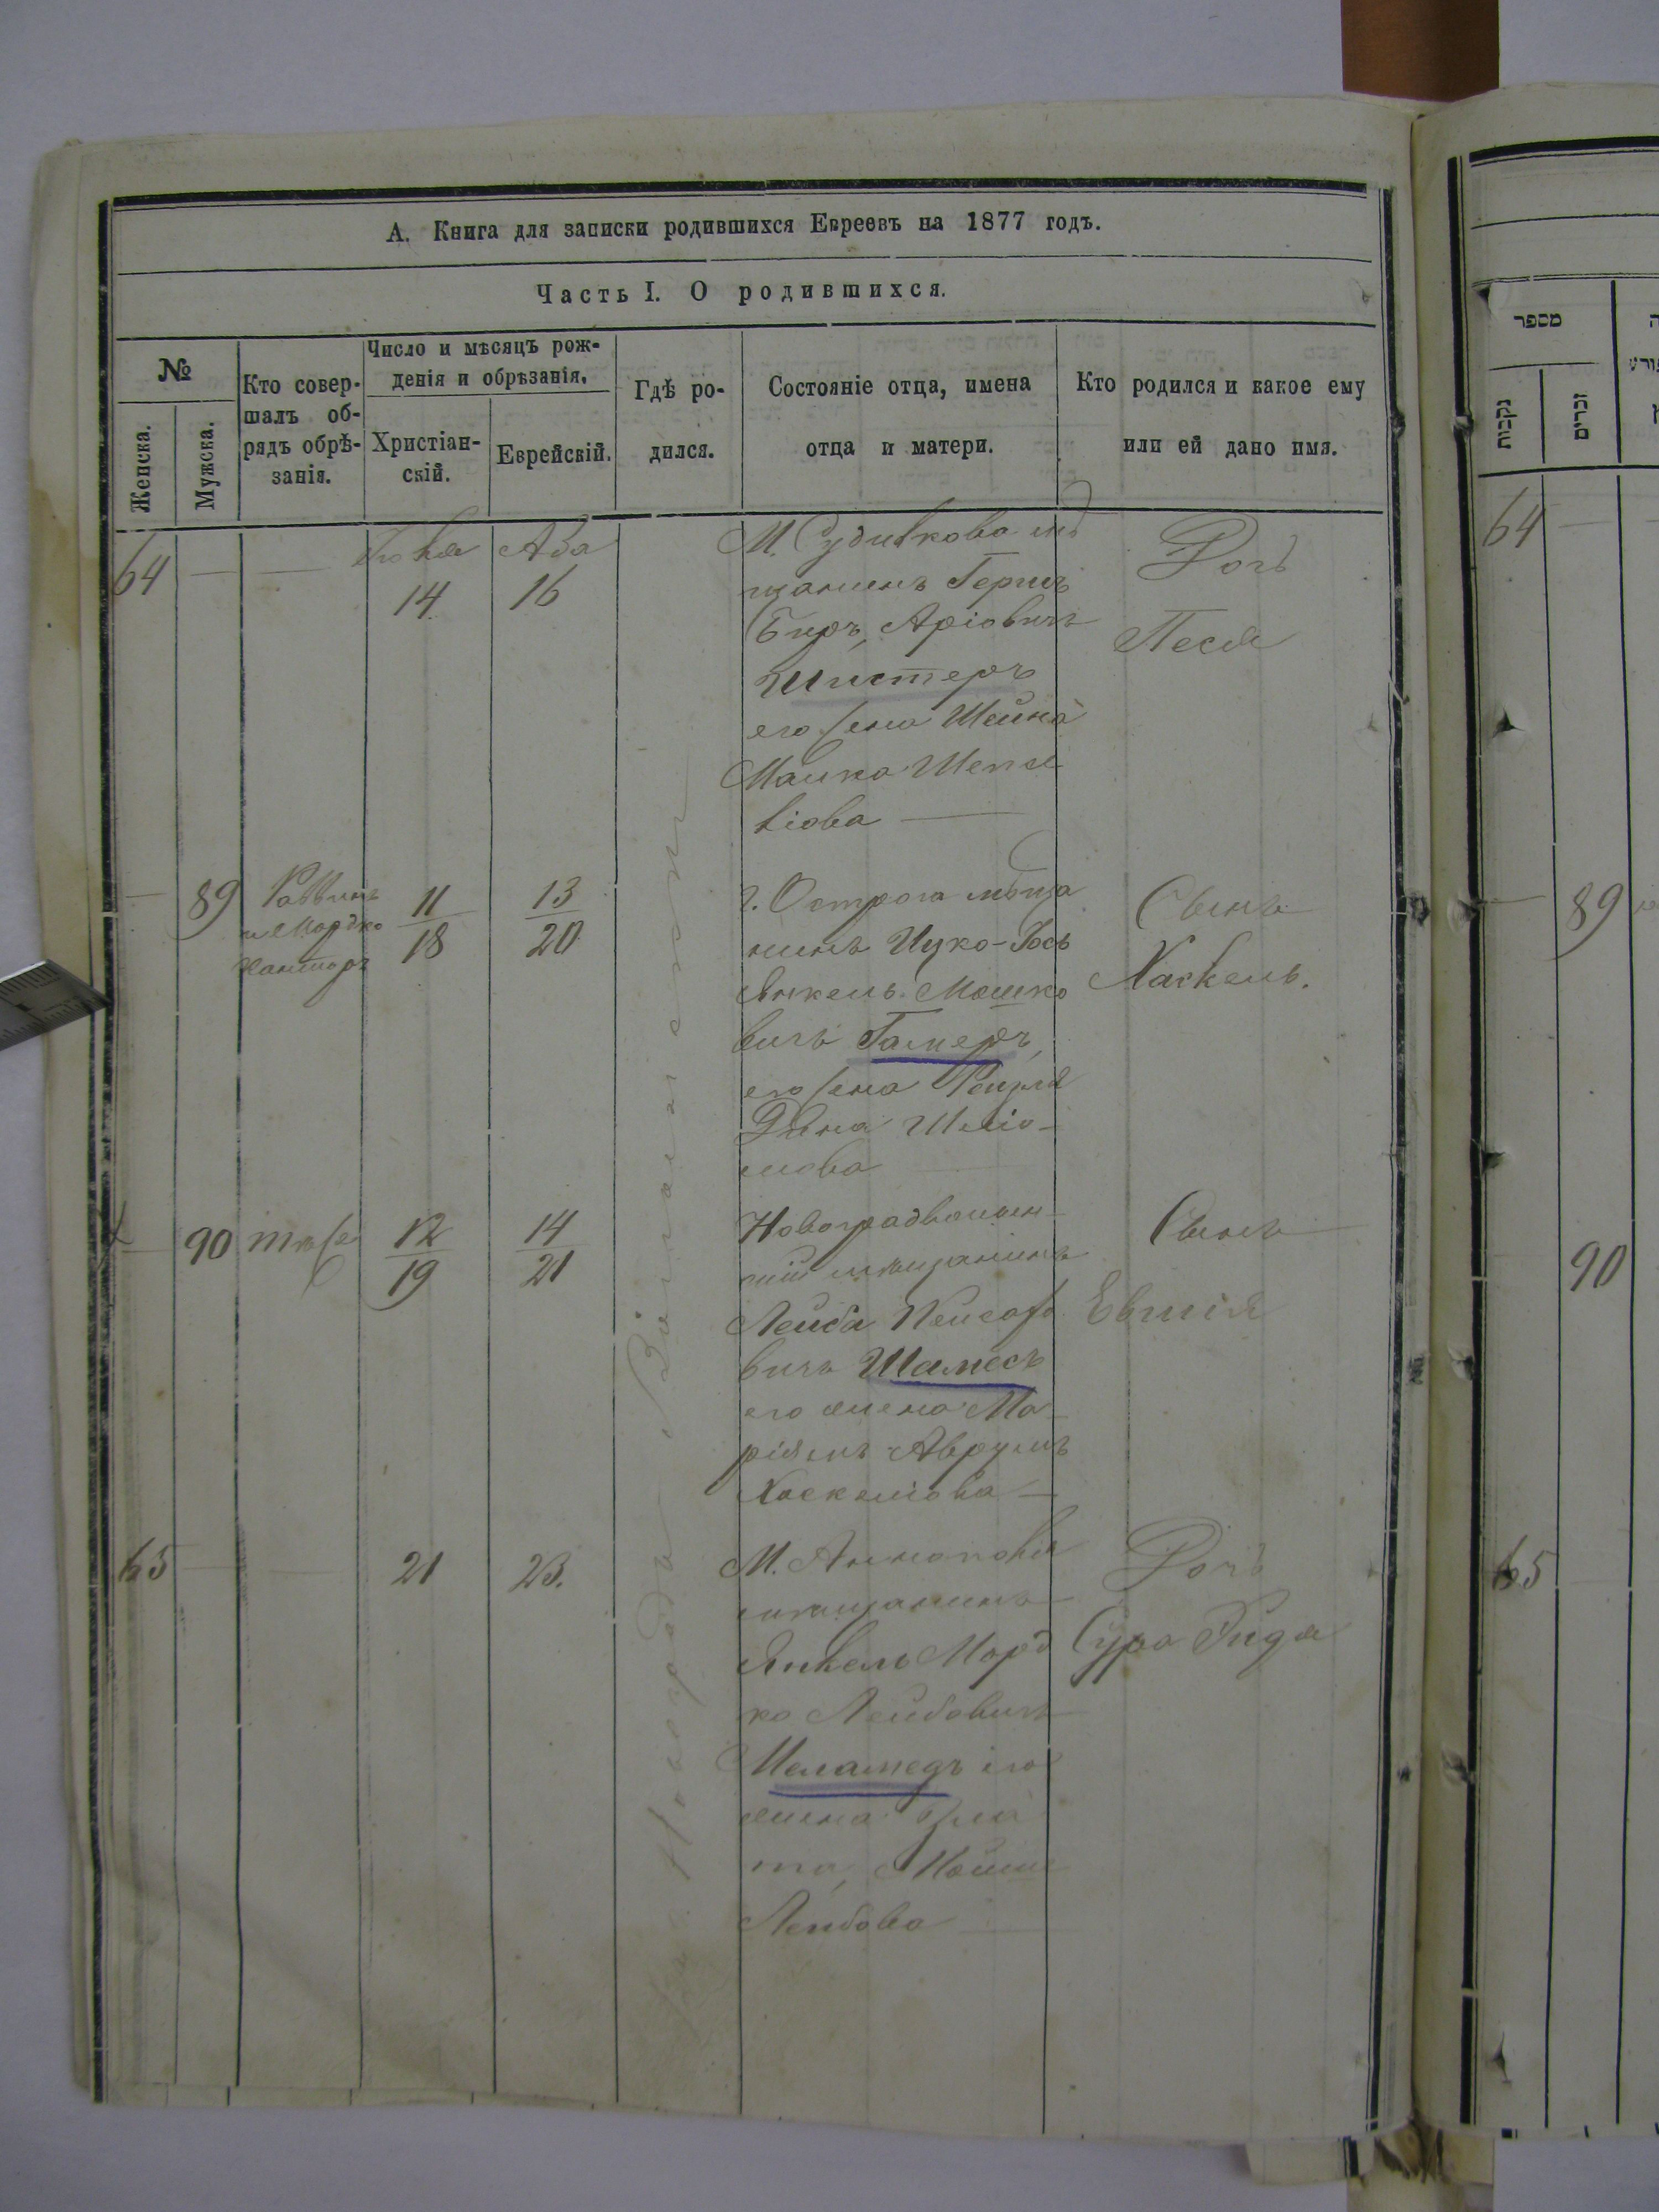 А. Книга для записки родившихся Евреевъ на 1877 годъ.
Часть I. О родившихся.
№
Женска.
Мужска.
Кто совер-
шалъ об-
рядъ обрѣ-
занія.
Число и мѣсяцъ рож-
денія и обрѣзанія.
Христіан-
скій.
Еврейскій.
Гдѣ ро-
дился.
Состояніе отца, имена
отца и матери.
Кто родился и какое ему
или ей дано имя.
64
Іюля
14
Ава
16
М. Судилкова мѣ
щанинъ Гершъ
Беръ, Аріовичъ
Шистеръ
его жена Шейна
Малка Шепсе
ліова
Дочь
Песя
89
Раввинъ
и Мордко
Канторъ
11
18
13
20
г. Острога мѣща
нинъ Ицко-Іось
Янкель Мошко
вичъ Гамеръ,
его жена Рейзля
Двина Шліо-
мова
Сынъ
Хаскель.
90
тѣ же
12
19
14
21
Новоградволын-
скій мѣщанинъ
Лейба
вичъ Шамесъ
его жена Ма-
ріямъ Аврумъ
Хаскеліова
Сынъ
65
21
23.
М. Аннополя
мѣщанинъ
Янкель Морд
ко Лейбовичъ
Меламедъ его
жена Зла
та, Мойше
Лейбова
Дочь
Сура
מספר
נקבות
זכרים
64
89
90
65